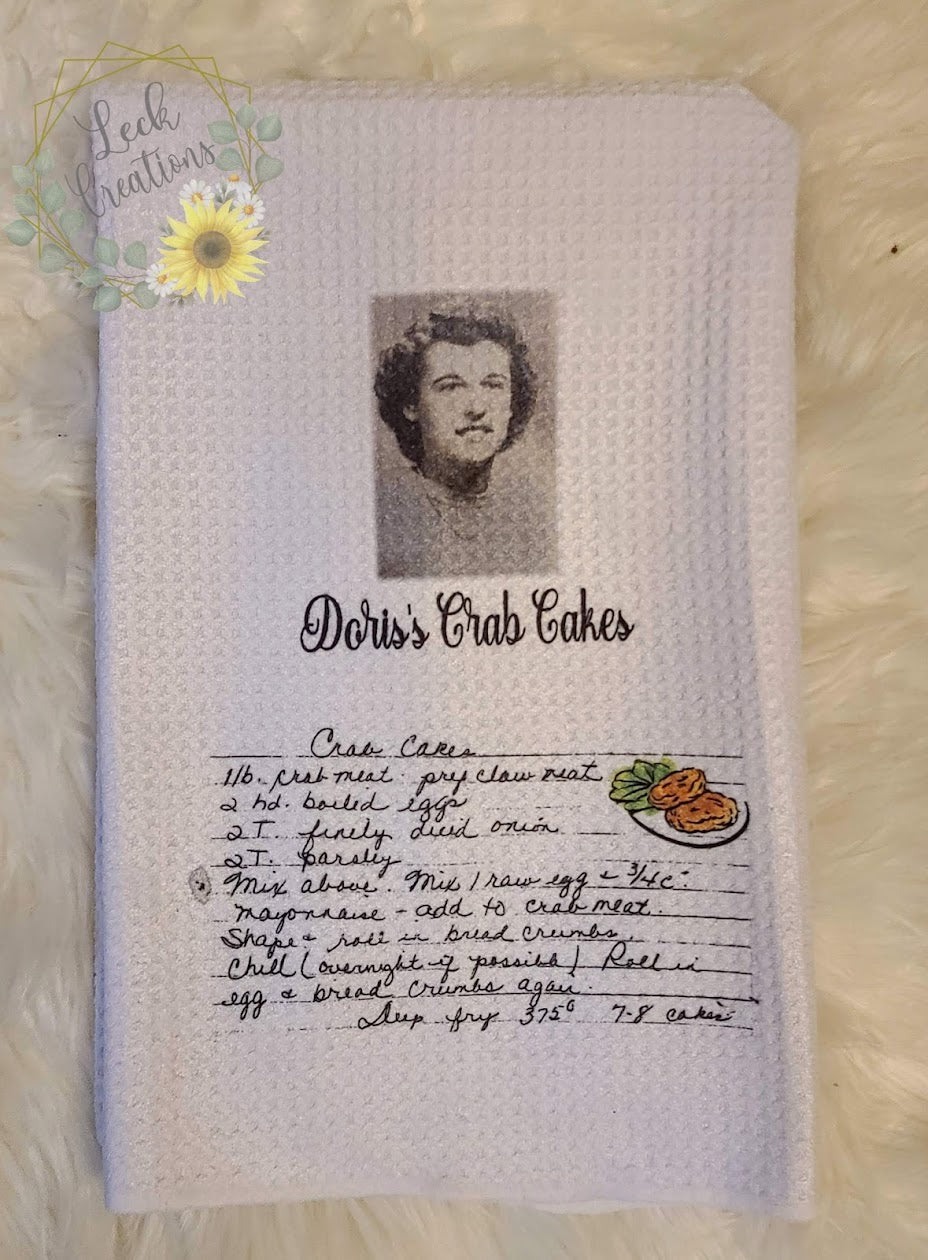 Leck
Creations
Doris's Crab Cakes
Crab Cakes
1 lb. crab meat - pref claw meat
2 hd. boiled eggs
2 T. finely diced onion
2 T. parsley
Mix above. Mix 1 raw egg & 3/4 c.
mayonnaise - add to crab meat.
Shape & roll in bread crumbs.
Chill (overnight if possible) Roll in
egg & bread crumbs again.
Deep fry 375° 7-8 cakes